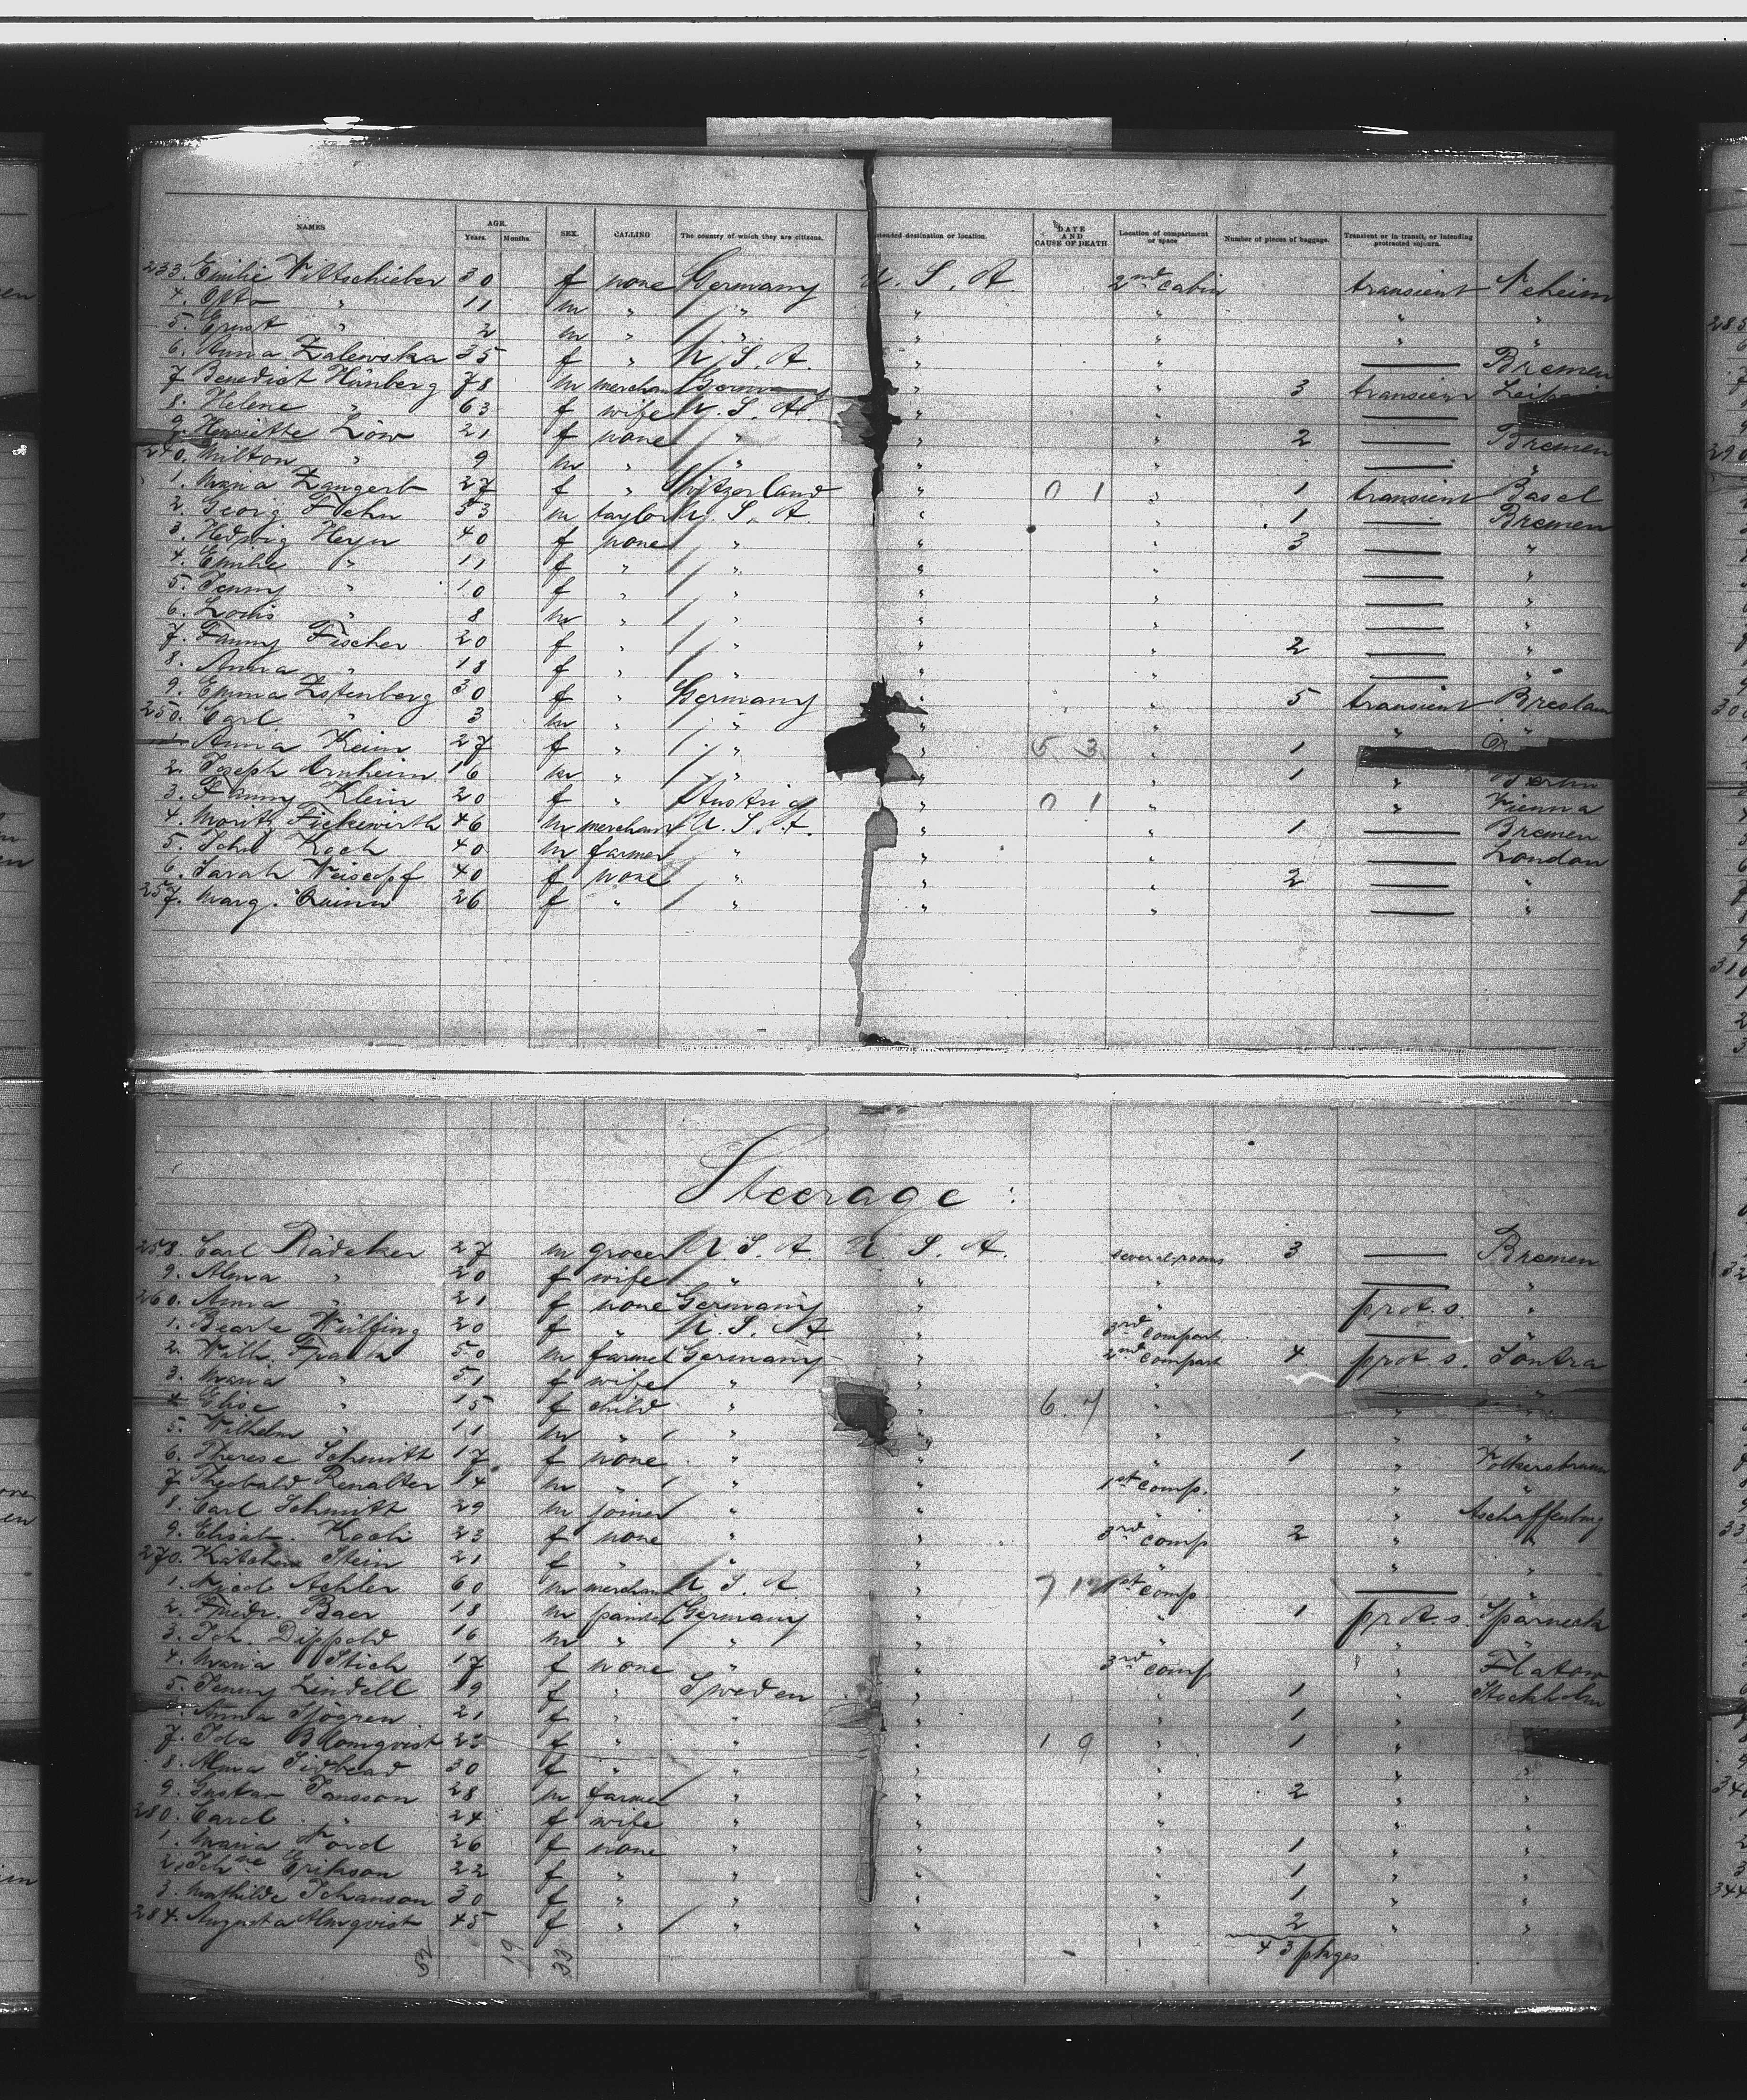 NAMES AGE. Years. Months. SEX. CALLING The country of which they are citizens. Intended destination or location. DATE AND CAUSE OF DEATH Location of compartment or space Number of pieces of baggage. Transient or in transit, or intending protracted sojourn.
233. Emilie Wittschieber 30 f none Germany U. S. A. 2nd cabin transient Neheim
4. Otto " 11 m " " " " " "
5. Ernst " 2 m " " " " " "
6. Anna Zalewska 35 f " U. S. A. " " — Bremen
7. Benedict Hünberg 78 m merchant Germany " " 3 transient
8. Helene " 63 f wife U. S. A. " " —
9. Henriette Löw 21 f none " " " 2 — Bremen
240. Milton " 9 m " " " " — "
1. Maria Zangerb 27 f " Switzerland " 0 1 " 1 transient Basel
2. Georg Fehn 53 m taylor U. S. A. " " 1 — Bremen
3. Hedwig Heyn 40 f none " " " 3 — "
4. Emilie " 11 f " " " " — "
5. Jenny " 10 f " " " " — "
6. Louis " 8 m " " " " — "
7. Fanny Fischer 20 f " " " " 2 — "
8. Anna " 18 f " " " " — "
9. Emma Zstenberg 30 f " Germany " " 5 transient Breslau
250. Carl " 3 m " " " " " "
Anna Keim 27 f " " " 5 3 " 1
2. Joseph Arnheim 16 m " " " " 1 " Berlin
3. Fanny Klein 20 f " Austria " 0 1 " " Vienna
4. Moritz Fickewirth 46 m merchant U. S. A. " " 1 — Bremen
5. John Koch 40 m farmer " " " — London
6. Sarah Weisopf 40 f none " " " 2 — "
257. Marg. Quinn 26 f " " " " — "
Steerage:
258. Carl Rädeker 27 m grocer U. S. A. U. S. A. several rooms 3 — Bremen
9. Alma " 20 f wife " " " — "
260. Anna " 21 f none Germany " " prot. s. "
1. Beate Wülfing 20 f " U. S. A. " 3rd compart. — "
2. Wilh. Frank 50 m farmer Germany " 2nd compart 4 prot. s. Sontra
3. Maria " 51 f wife " " " " "
4. Elise " 15 f child " " 6. 7 " " "
5. Wilhelm " 11 m " " " " " "
6. Therese Schmitt 17 f none " " " 1 "
7. Theobald Renalter 14 m " " " 1st comp. " "
8. Carl Schmitt 29 m joiner " " " " Aschaffenburg
9. Elisab. Koch 23 f none " " 3rd comp 2 " "
270. Kätchen Stein 21 f " " " " " "
1. Nicol Achler 60 m merchant U. S. A. 1st comp — "
2. Friedr. Baer 18 m painter Germany " " 1 prot. s. Sparneck
3. Joh. Dippold 16 m " " " " " "
4. Maria Stich 17 f none " " 3rd comp " Flatow
5. Jenny Lindell 19 f " Sweden " " 1 " Stockholm
Anna Sjögren 21 f " " " " 1 " "
7. Ida Blomqvist 23 f " " " 1 9 " 1 " "
8. Alma Sidbead 30 f " " " " " "
9. Gustav Jansson 28 m farmer " " " 2 " "
280. Carol. " 24 f wife " " " " "
1. Maria Nord 26 f none " " " 1 " "
2. Johne Erikson 22 f " " " " 1 " "
3. Mathilde Johanson 30 f " " " " 1 " "
284. Augusta Almqvist 45 f " " " " 2 " "
52 19 33 43 pkges